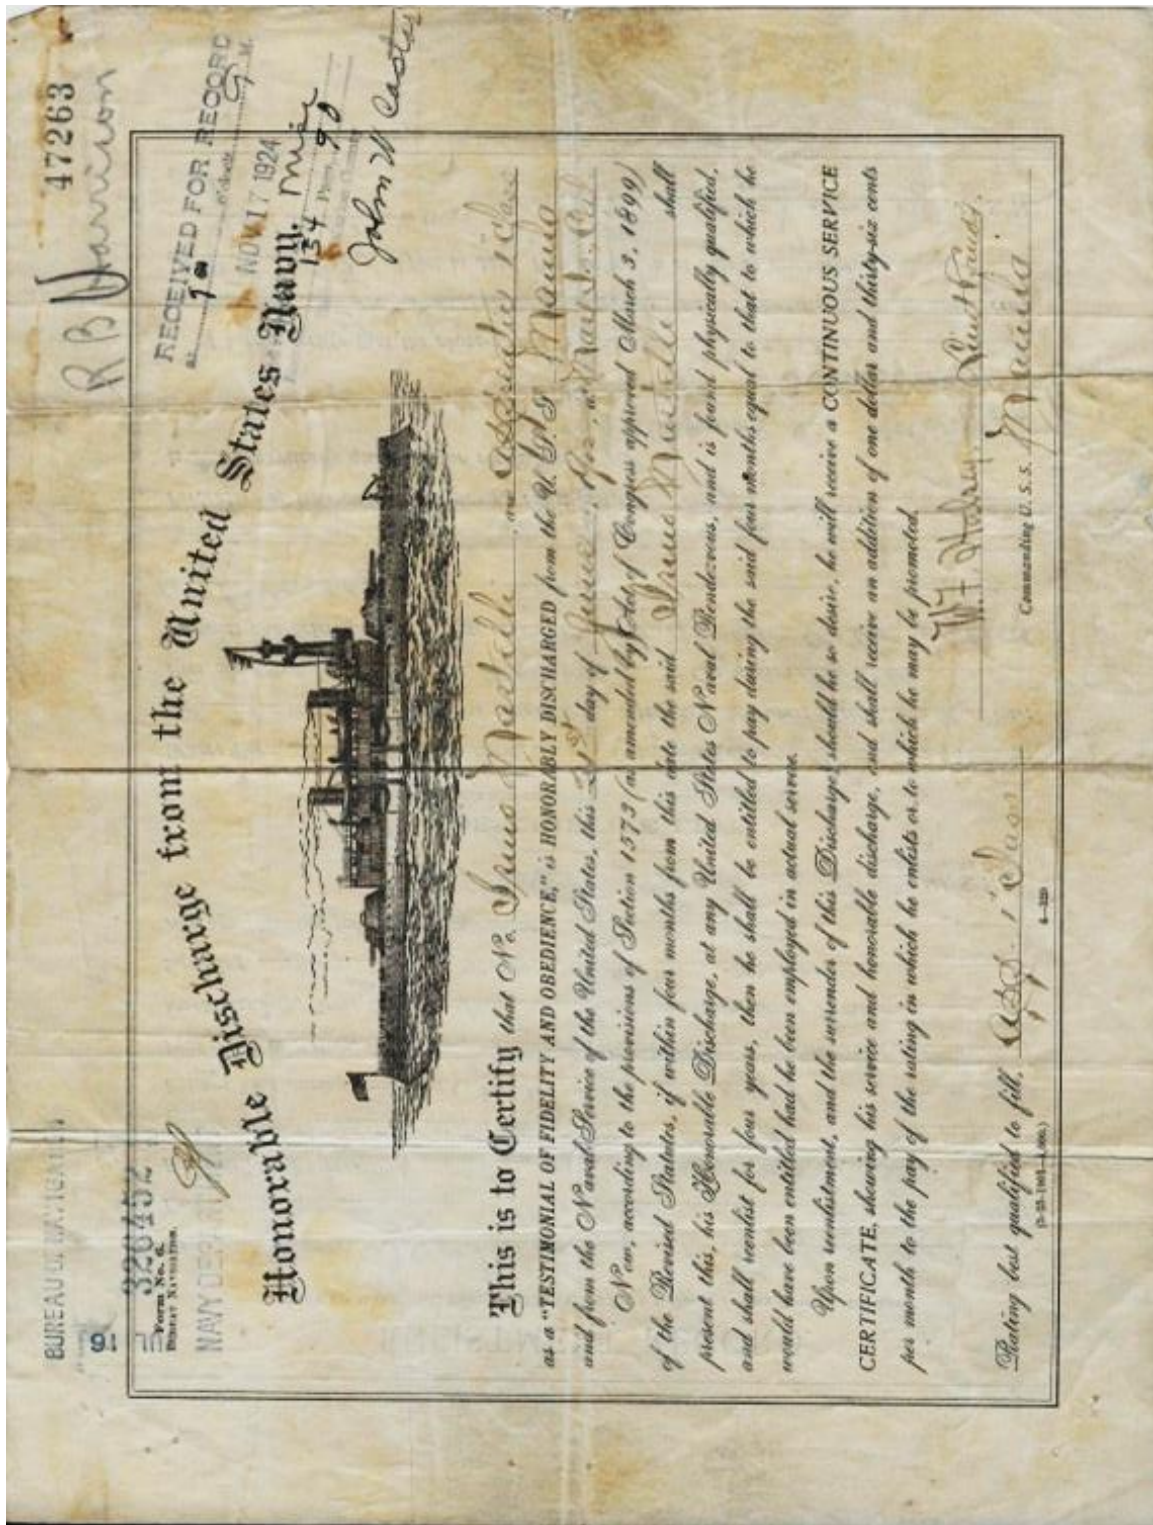 47263
R B Harrison
BUREAU OF NAVIGATION
320452
Form No. 6.
BUREAU NAVIGATION.
NAVY DEPARTMENT
RECEIVED FOR RECORD
NOV 17 1924
134 Misc
90
John W
Honorable Discharge from the United States Navy.
This is to Certify that No.
as a "TESTIMONIAL OF FIDELITY AND OBEDIENCE," is HONORABLY DISCHARGED from the U. S. S. Manila
and from the Naval Service of the United States, this 21st day of June
Now, according to the provisions of Section 1573 (as amended by Act of Congress approved March 3, 1899)
of the Revised Statutes, if within four months from this date the said shall
present this, his Honorable Discharge, at any United States Naval Rendezvous, and is found physically qualified,
and shall reenlist for four years, then he shall be entitled to pay during the said four months equal to that to which he
would have been entitled had he been employed in actual service.
Upon reenlistment, and the surrender of this Discharge, should he so desire, he will receive a CONTINUOUS SERVICE
CERTIFICATE, showing his service and honorable discharge, and shall receive an addition of one dollar and thirty-six cents
per month to the pay of the rating in which he enlists or to which he may be promoted.
Rating best qualified to fill,
Commanding U. S. S. Manila